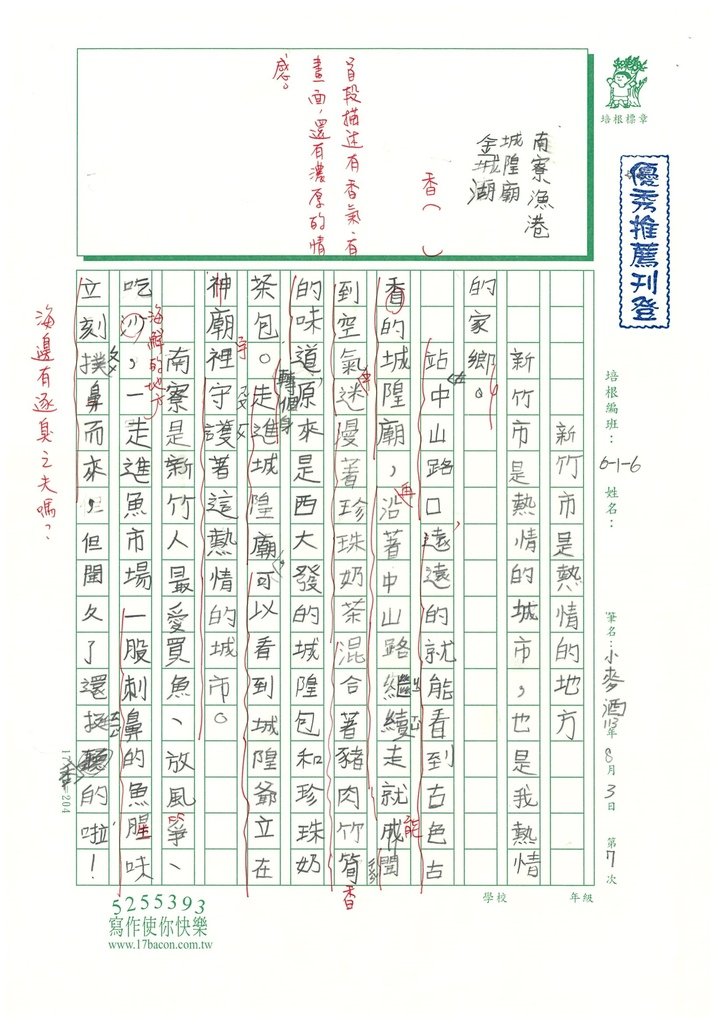 培根標章
優秀推薦刊登
南寮漁港
城隍廟
金城湖
香（ ）
首段描述有香氣，有
畫面，還有濃厚的情
感。
培根編班：6-1-6
姓名：
筆名：小麥酒
113年8月3日 第7次
新竹市是熱情的地方
新竹市是熱情的城市，也是我熱情
的家鄉。
站中山路口遠遠的就能看到古色古
香的城隍廟，沿著中山路繼續走就成聞
到空氣迷漫著珍珠奶茶混合著豬肉竹筍
的味道原來是西大發的城隍包和珍珠奶
茶包。走進城隍廟可以看到城隍爺立在
神廟裡守護著這熱情的城市。
南寮是新竹人最愛買魚、放風箏、
吃沙，一走進魚市場一股刺鼻的魚腥味
立刻撲鼻而來，但聞久了還挺香的啦！
再
能
香
轉個身
海鮮的地方
海邊有逐臭之夫嗎？
學校
年級
5255393
寫作使你快樂
www.17bacon.com.tw